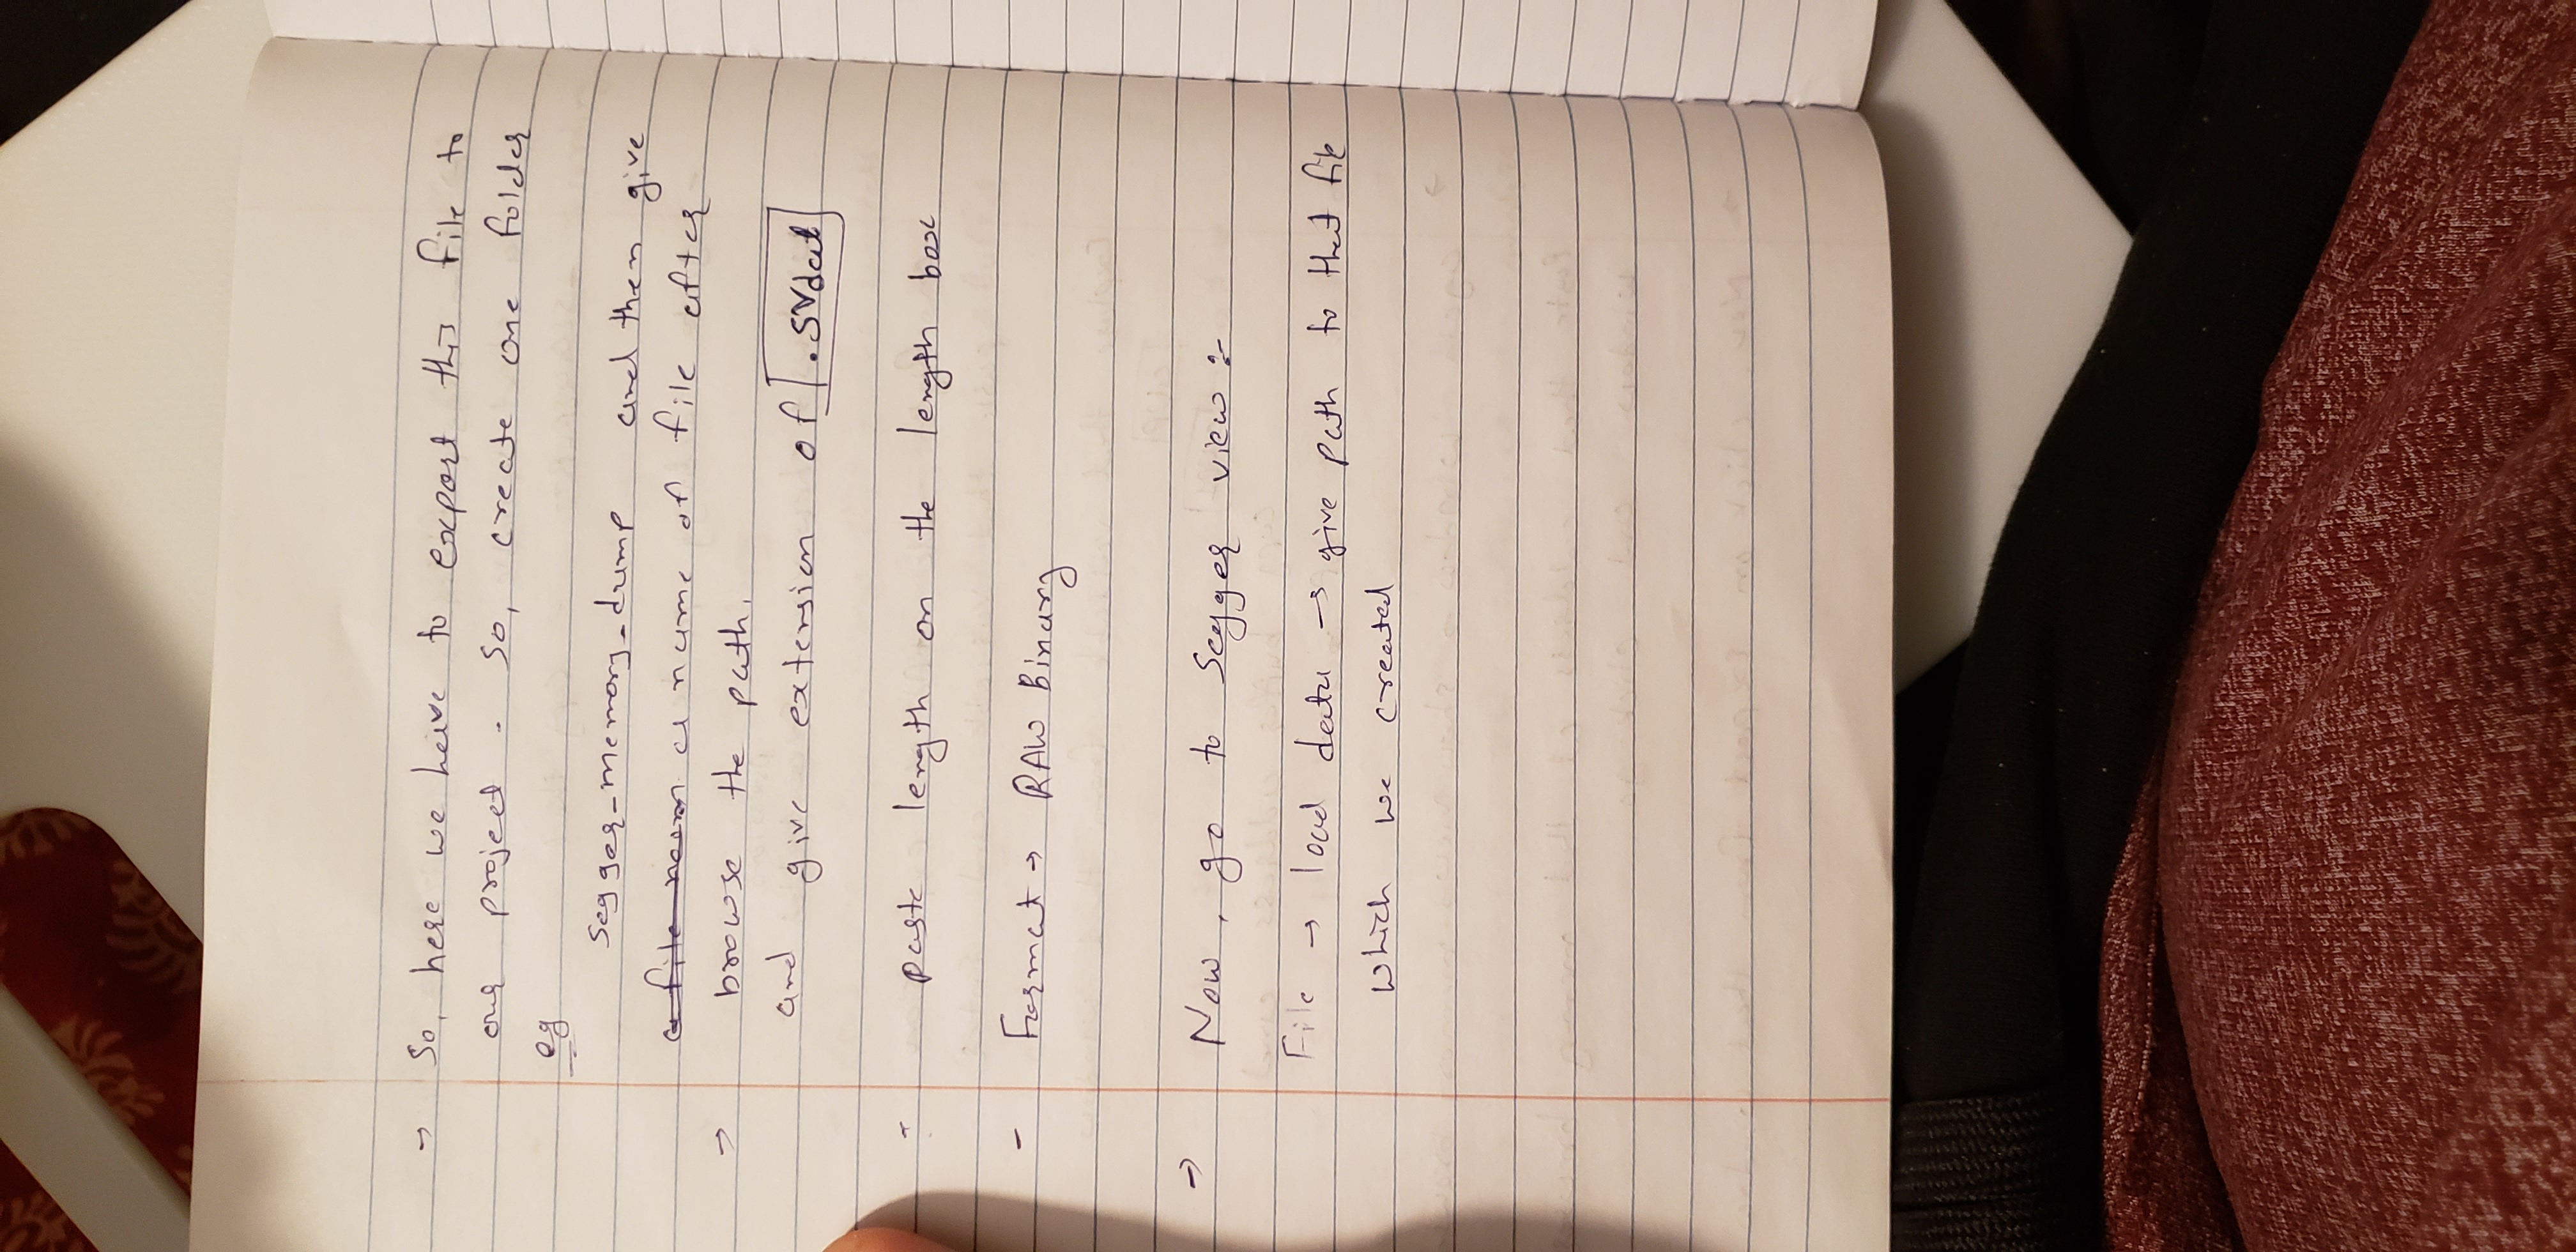 → So, here we have to export this file to
our project. So, create one folder
eg
Segger_memory_dump and then give
a file nam a name of file after
→ browse the path.
and give extension of .SVdat
- paste length on the length box
- Format → RAW Binary
→ Now, go to Segger view :-
File → load data → give path to that file
which we created